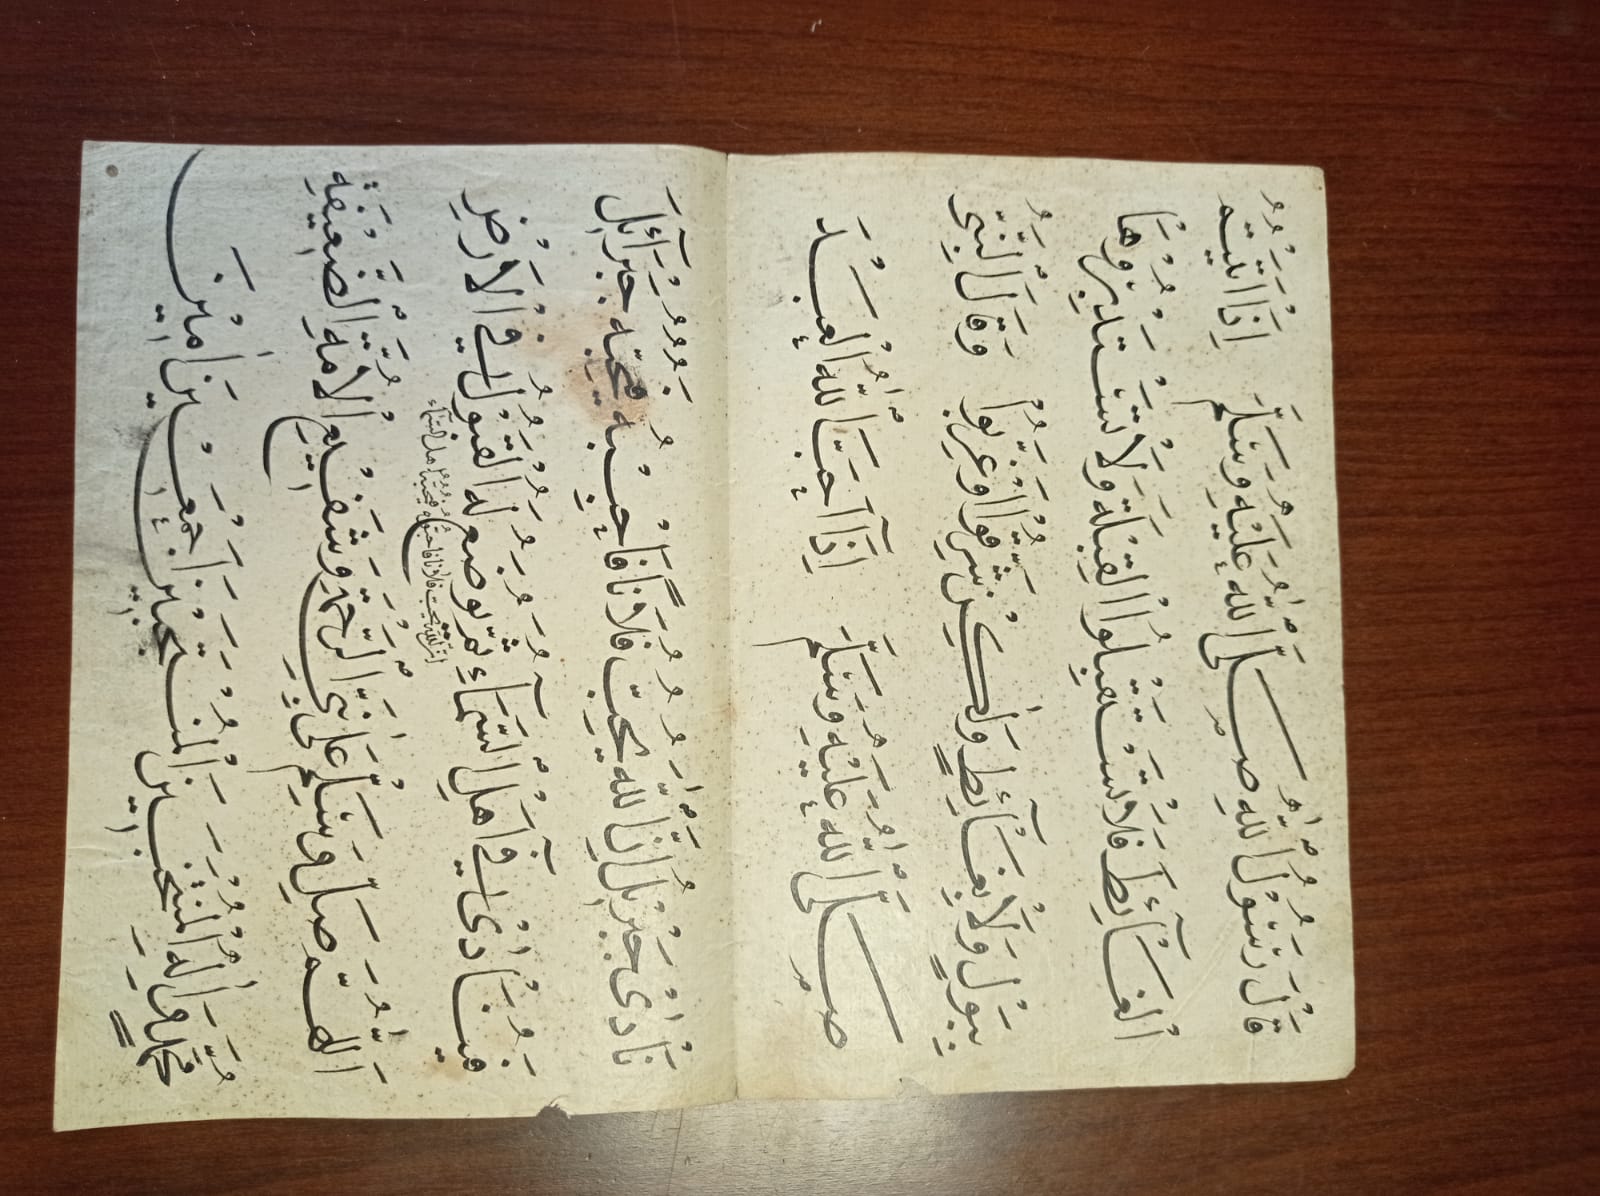 قَالَ رَسُولُ اللهِ صَلَّى اللهُ عَلَيْهِ وَسَلَّمَ إِذَا أَتَيْتُمُ
الْغَائِطَ فَلَا تَسْتَقْبِلُوا الْقِبْلَةَ وَلَا تَسْتَدْبِرُوهَا
بِبَوْلٍ وَلَا بِغَائِطٍ وَلَكِنْ شَرِّقُوا أَوْ غَرِّبُوا وَقَالَ النَّبِيُّ
صَلَّى اللهُ عَلَيْهِ وَسَلَّمَ إِذَا أَحَبَّ اللهُ الْعَبْدَ
نَادَى جِبْرِيلَ إِنَّ اللهَ يُحِبُّ فُلَانًا فَأَحْبِبْهُ فَيُحِبُّهُ جَبْرَائِيلُ
فَيُنَادِي فِي أَهْلِ السَّمَاءِ ثُمَّ يُوضَعُ لَهُ الْقَبُولُ فِي الْأَرْضِ
إن الله يحب فلانا فأحبوه فيحبه أهل السماء
اللَّهُمَّ صَلِّ وَسَلِّمْ عَلَى نَبِيِّ الرَّحْمَةِ وَشَفِيعِ الْأُمَّةِ الضَّعِيفَةِ
مُحَمَّدٍ وَآلِهِ الْمُنْتَخَبِينَ الْمُنْتَجَبِينَ أَجْمَعِينَ آمِينَ